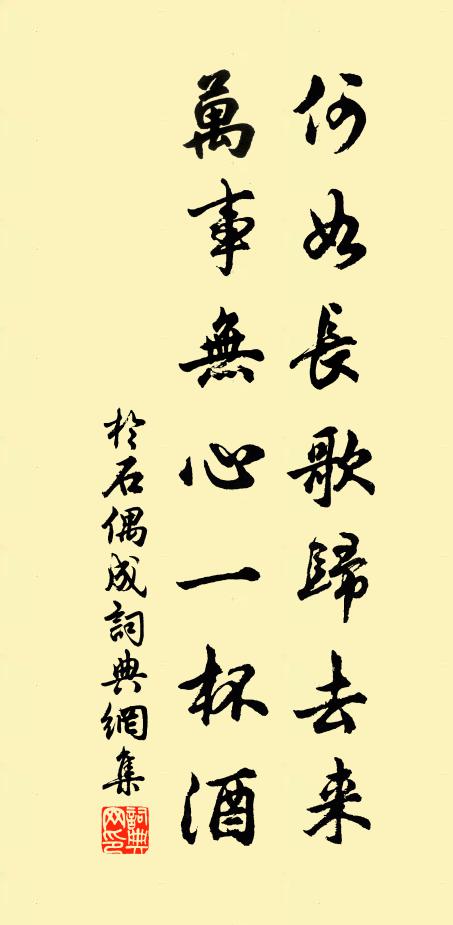 何如長歌歸去来
萬事無心一杯酒
於石偶成詞典網集
詞典网印